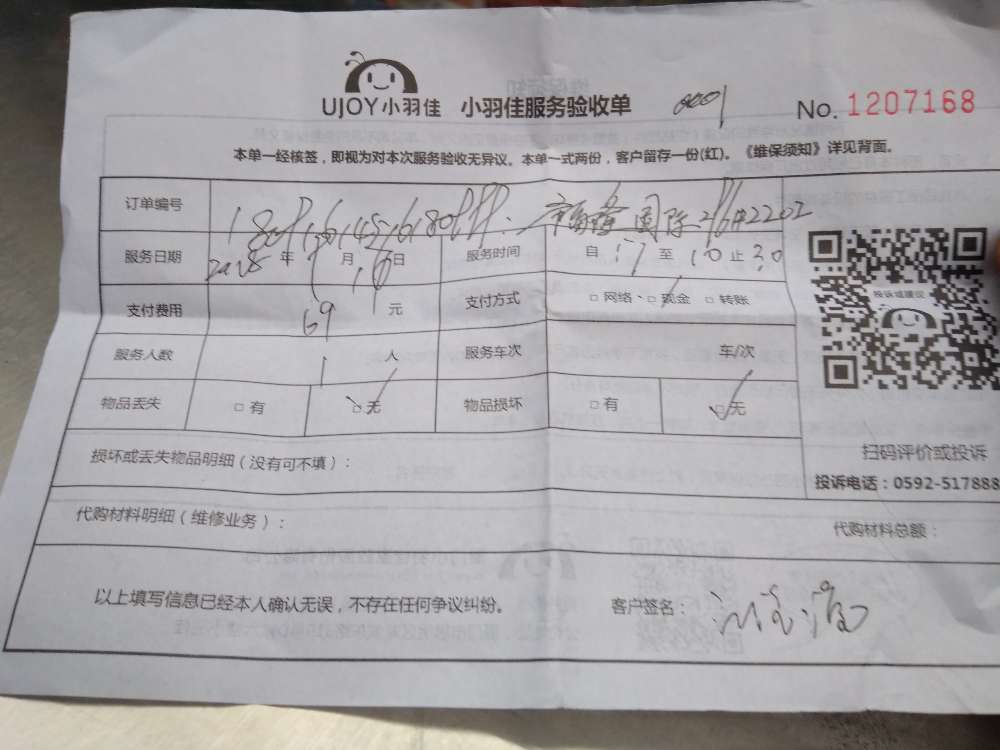 UJOY小羽佳 小羽佳服务验收单 0001 No. 1207168
本单一经核签，即视为对本次服务验收无异议。本单一式两份，客户留存一份(红)。《维保须知》详见背面。
订单编号 国际 2202
服务日期 2018 年 月 16 日 服务时间 自 17 至 10 止 30
支付费用 69 元 支付方式 □网络、□现金 □转账
服务人数 1 人 服务车次 车/次
物品丢失 □有 □无 物品损坏 □有 □无
投诉或建议
损坏或丢失物品明细（没有可不填）：
扫码评价或投诉
投诉电话：0592-517888
代购材料明细（维修业务）： 代购材料总额：
以上填写信息已经本人确认无误，不存在任何争议纠纷。 客户签名：